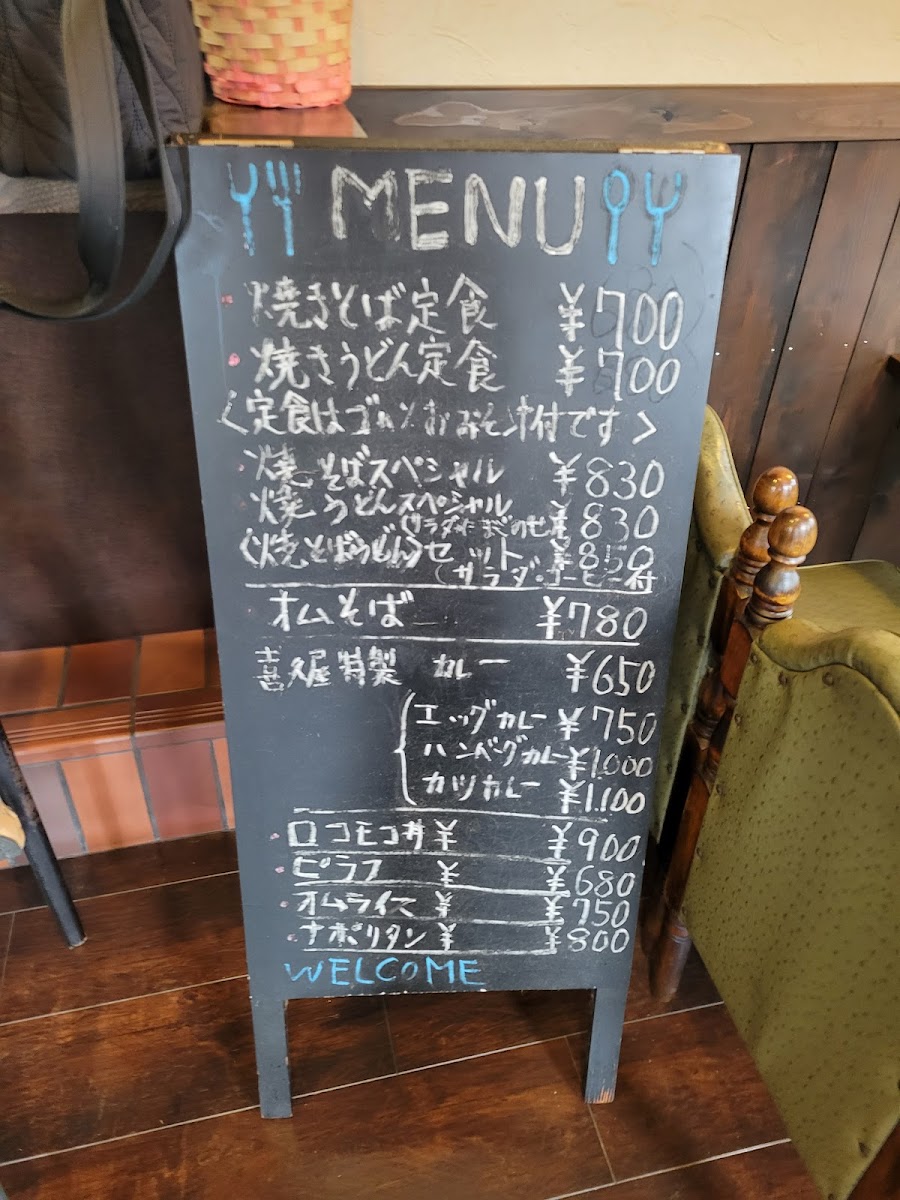 MENU
焼きそば定食 ¥700
焼きうどん定食 ¥700
〈定食はゴハンおみそ汁付です〉
焼そばスペシャル ¥830
焼うどんスペシャル ¥830
(サラダ・たまごのせ
〈焼そばうどん〉セット ¥850
(サラダ・コーヒー付
オムそば ¥780
喜久屋特製 カレー ¥650
エッグカレー ¥750
ハンバーグカレー ¥1.000
カツカレー ¥1.100
ロコモコ丼 ¥ ¥900
ピラフ ¥ ¥680
オムライス ¥ ¥750
ナポリタン ¥ ¥800
WELCOME